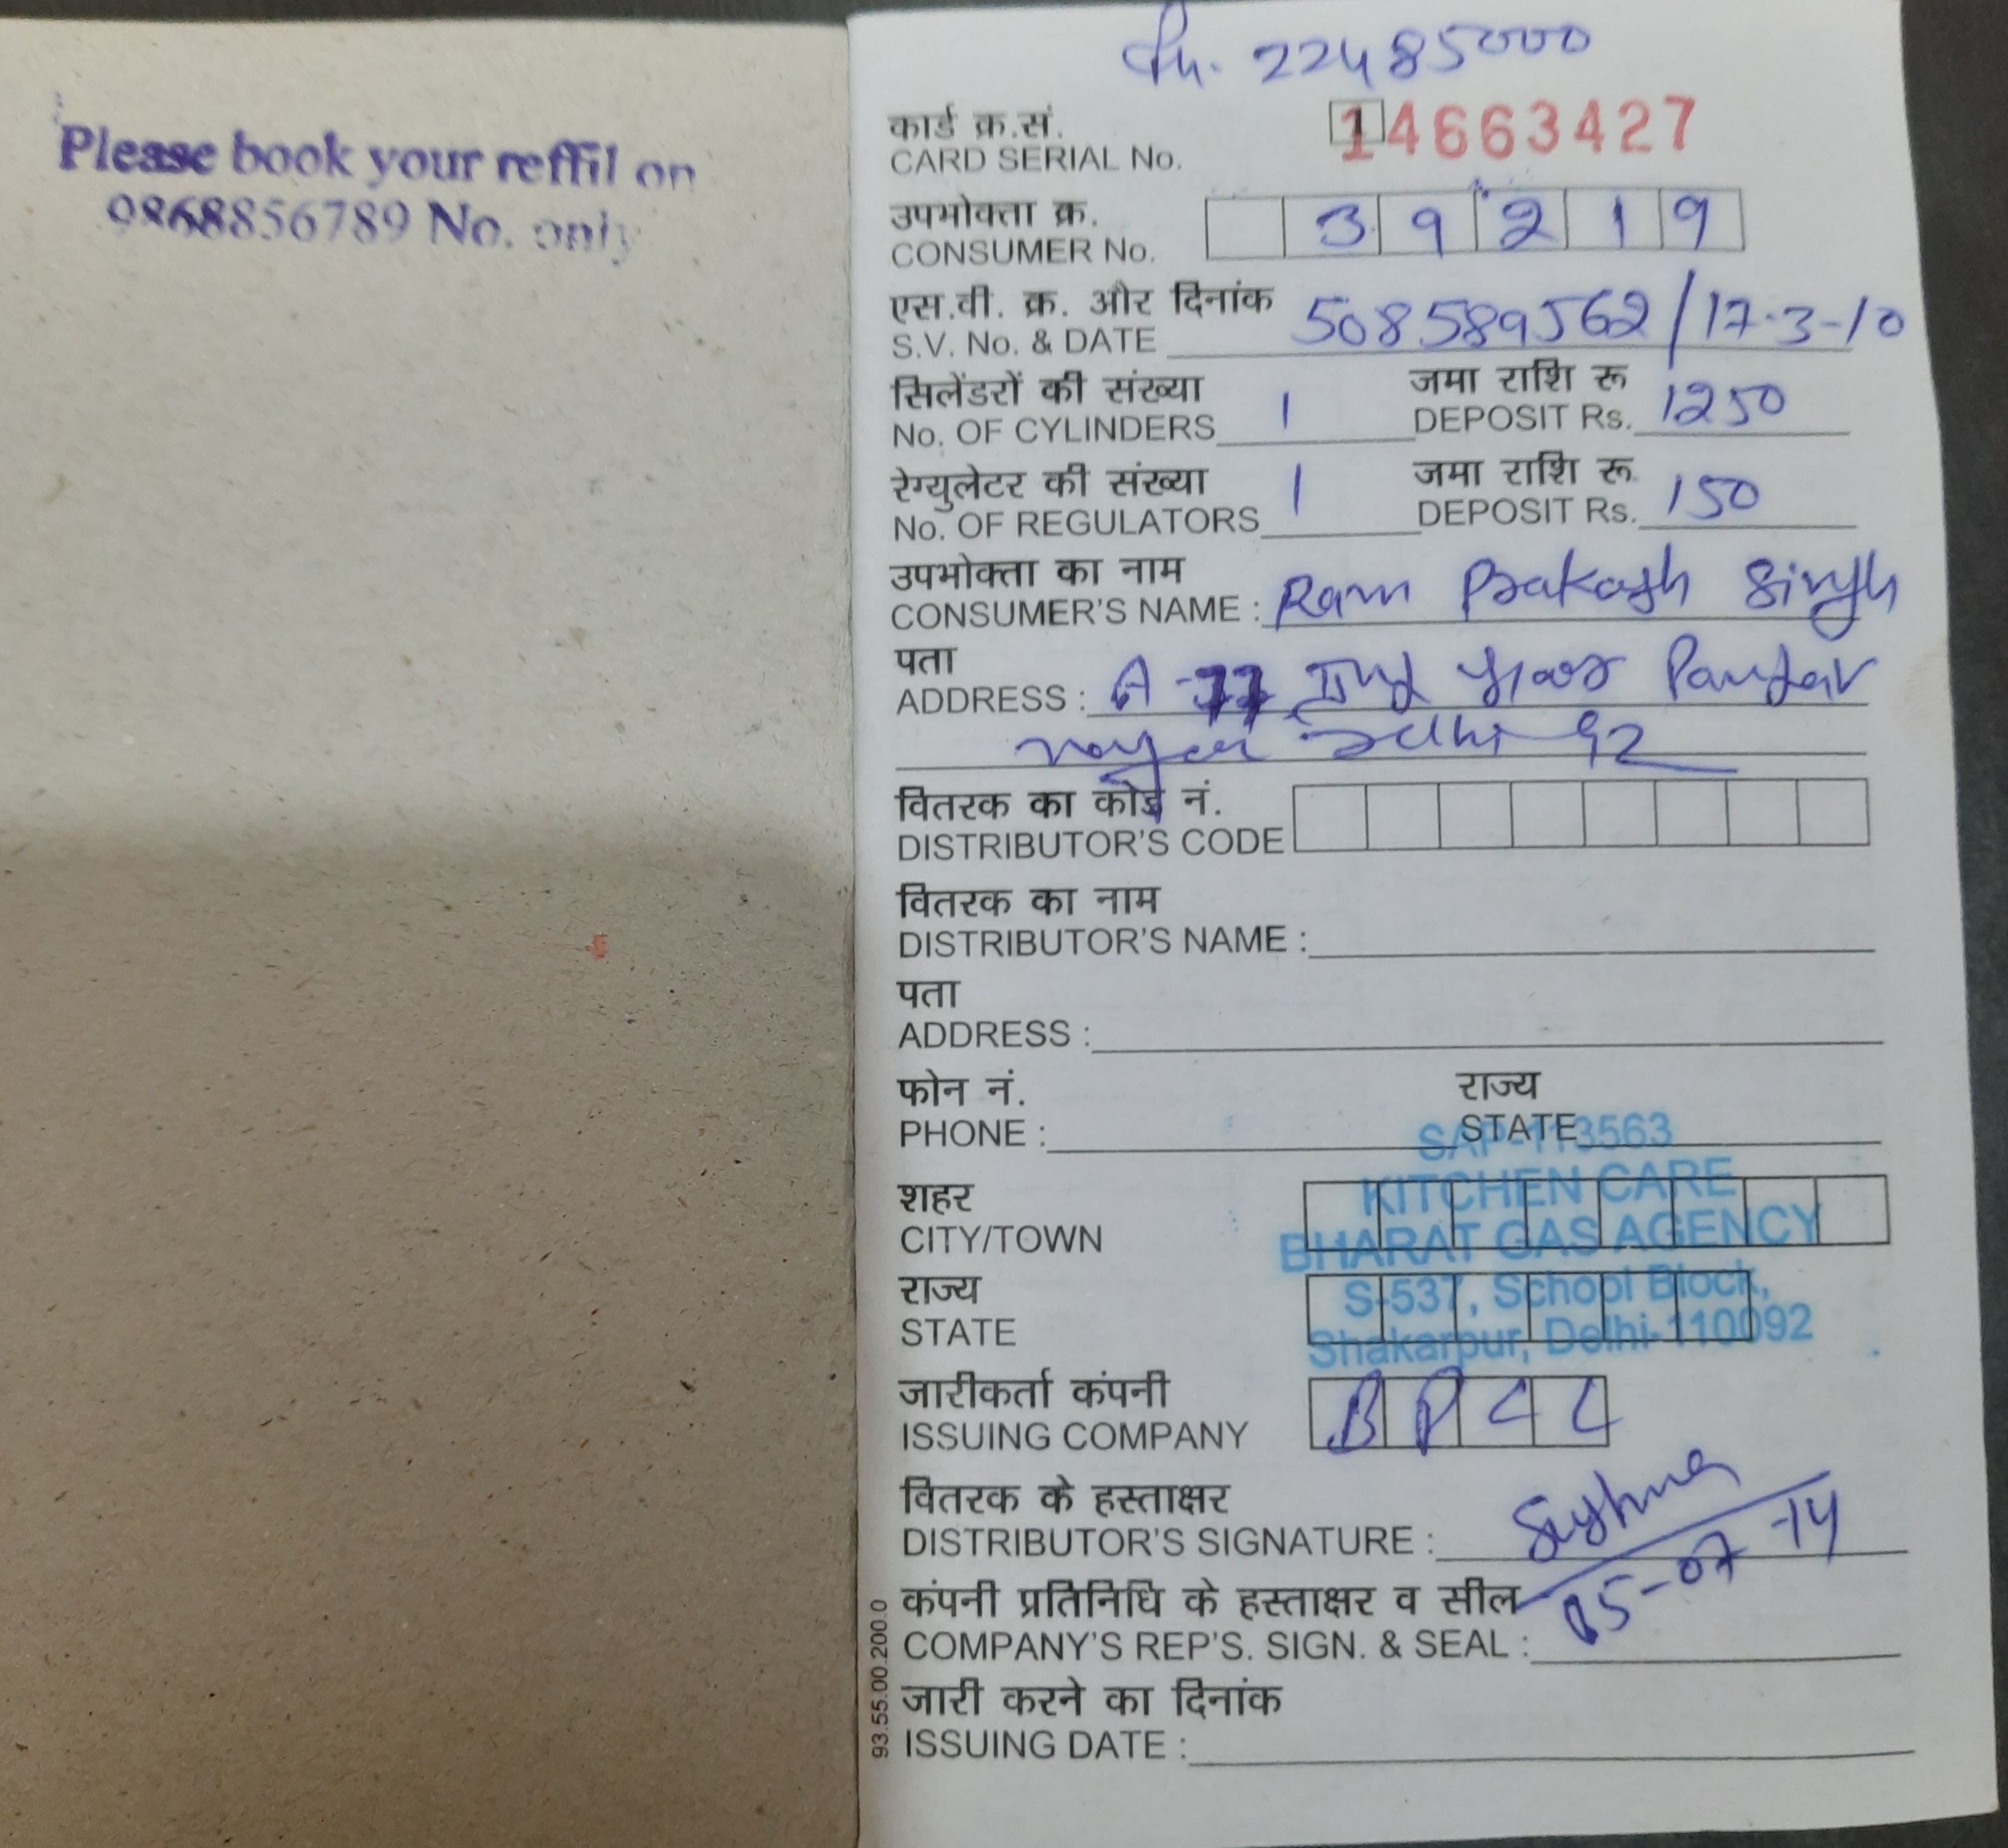 Please book your reffil on
9868856789 No. only
Ph. 22485000
कार्ड क्र.सं.
CARD SERIAL No. 14663427
उपभोक्ता क्र.
CONSUMER No. 39219
एस.वी. क्र. और दिनांक
S.V. No. & DATE 508589562/17-3-10
सिलेंडरों की संख्या जमा राशि रू
No. OF CYLINDERS 1 DEPOSIT Rs. 1250
रेग्युलेटर की संख्या जमा राशि रू.
No. OF REGULATORS 1 DEPOSIT Rs. 150
उपभोक्ता का नाम
CONSUMER'S NAME : Ram Prakash Singh
पता
ADDRESS : A-77 IInd floor Pandav
nagar Delhi 92
वितरक का कोड नं.
DISTRIBUTOR'S CODE
वितरक का नाम
DISTRIBUTOR'S NAME :
पता
ADDRESS :
फोन नं. राज्य
PHONE : STATE
SAP-113563
KITCHEN CARE
शहर
CITY/TOWN
BHARAT GAS AGENCY
राज्य
S-537, School Block,
STATE
Shakarpur, Delhi-110092
जारीकर्ता कंपनी
ISSUING COMPANY BPCL
वितरक के हस्ताक्षर
DISTRIBUTOR'S SIGNATURE :
05-07-14
कंपनी प्रतिनिधि के हस्ताक्षर व सील
COMPANY'S REP'S. SIGN. & SEAL :
जारी करने का दिनांक
ISSUING DATE :
93.55.00.200.0